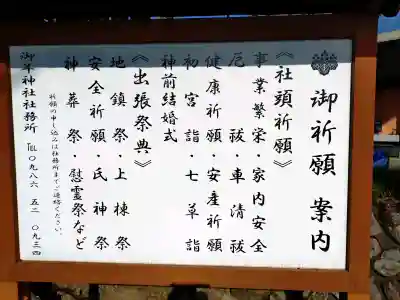 御祈願案内
《社頭祈願》
事業繁栄・家内安全
厄祓・車清祓
健康祈願・安産祈願
初宮詣・七草詣
神前結婚式
《出張祭典》
地鎮祭・上棟祭
安全祈願・氏神祭
神葬祭・慰霊祭など
祈願の申し込みは社務所までご連絡ください。
御年神社社務所 ℡〇九八六 五二 〇九三四